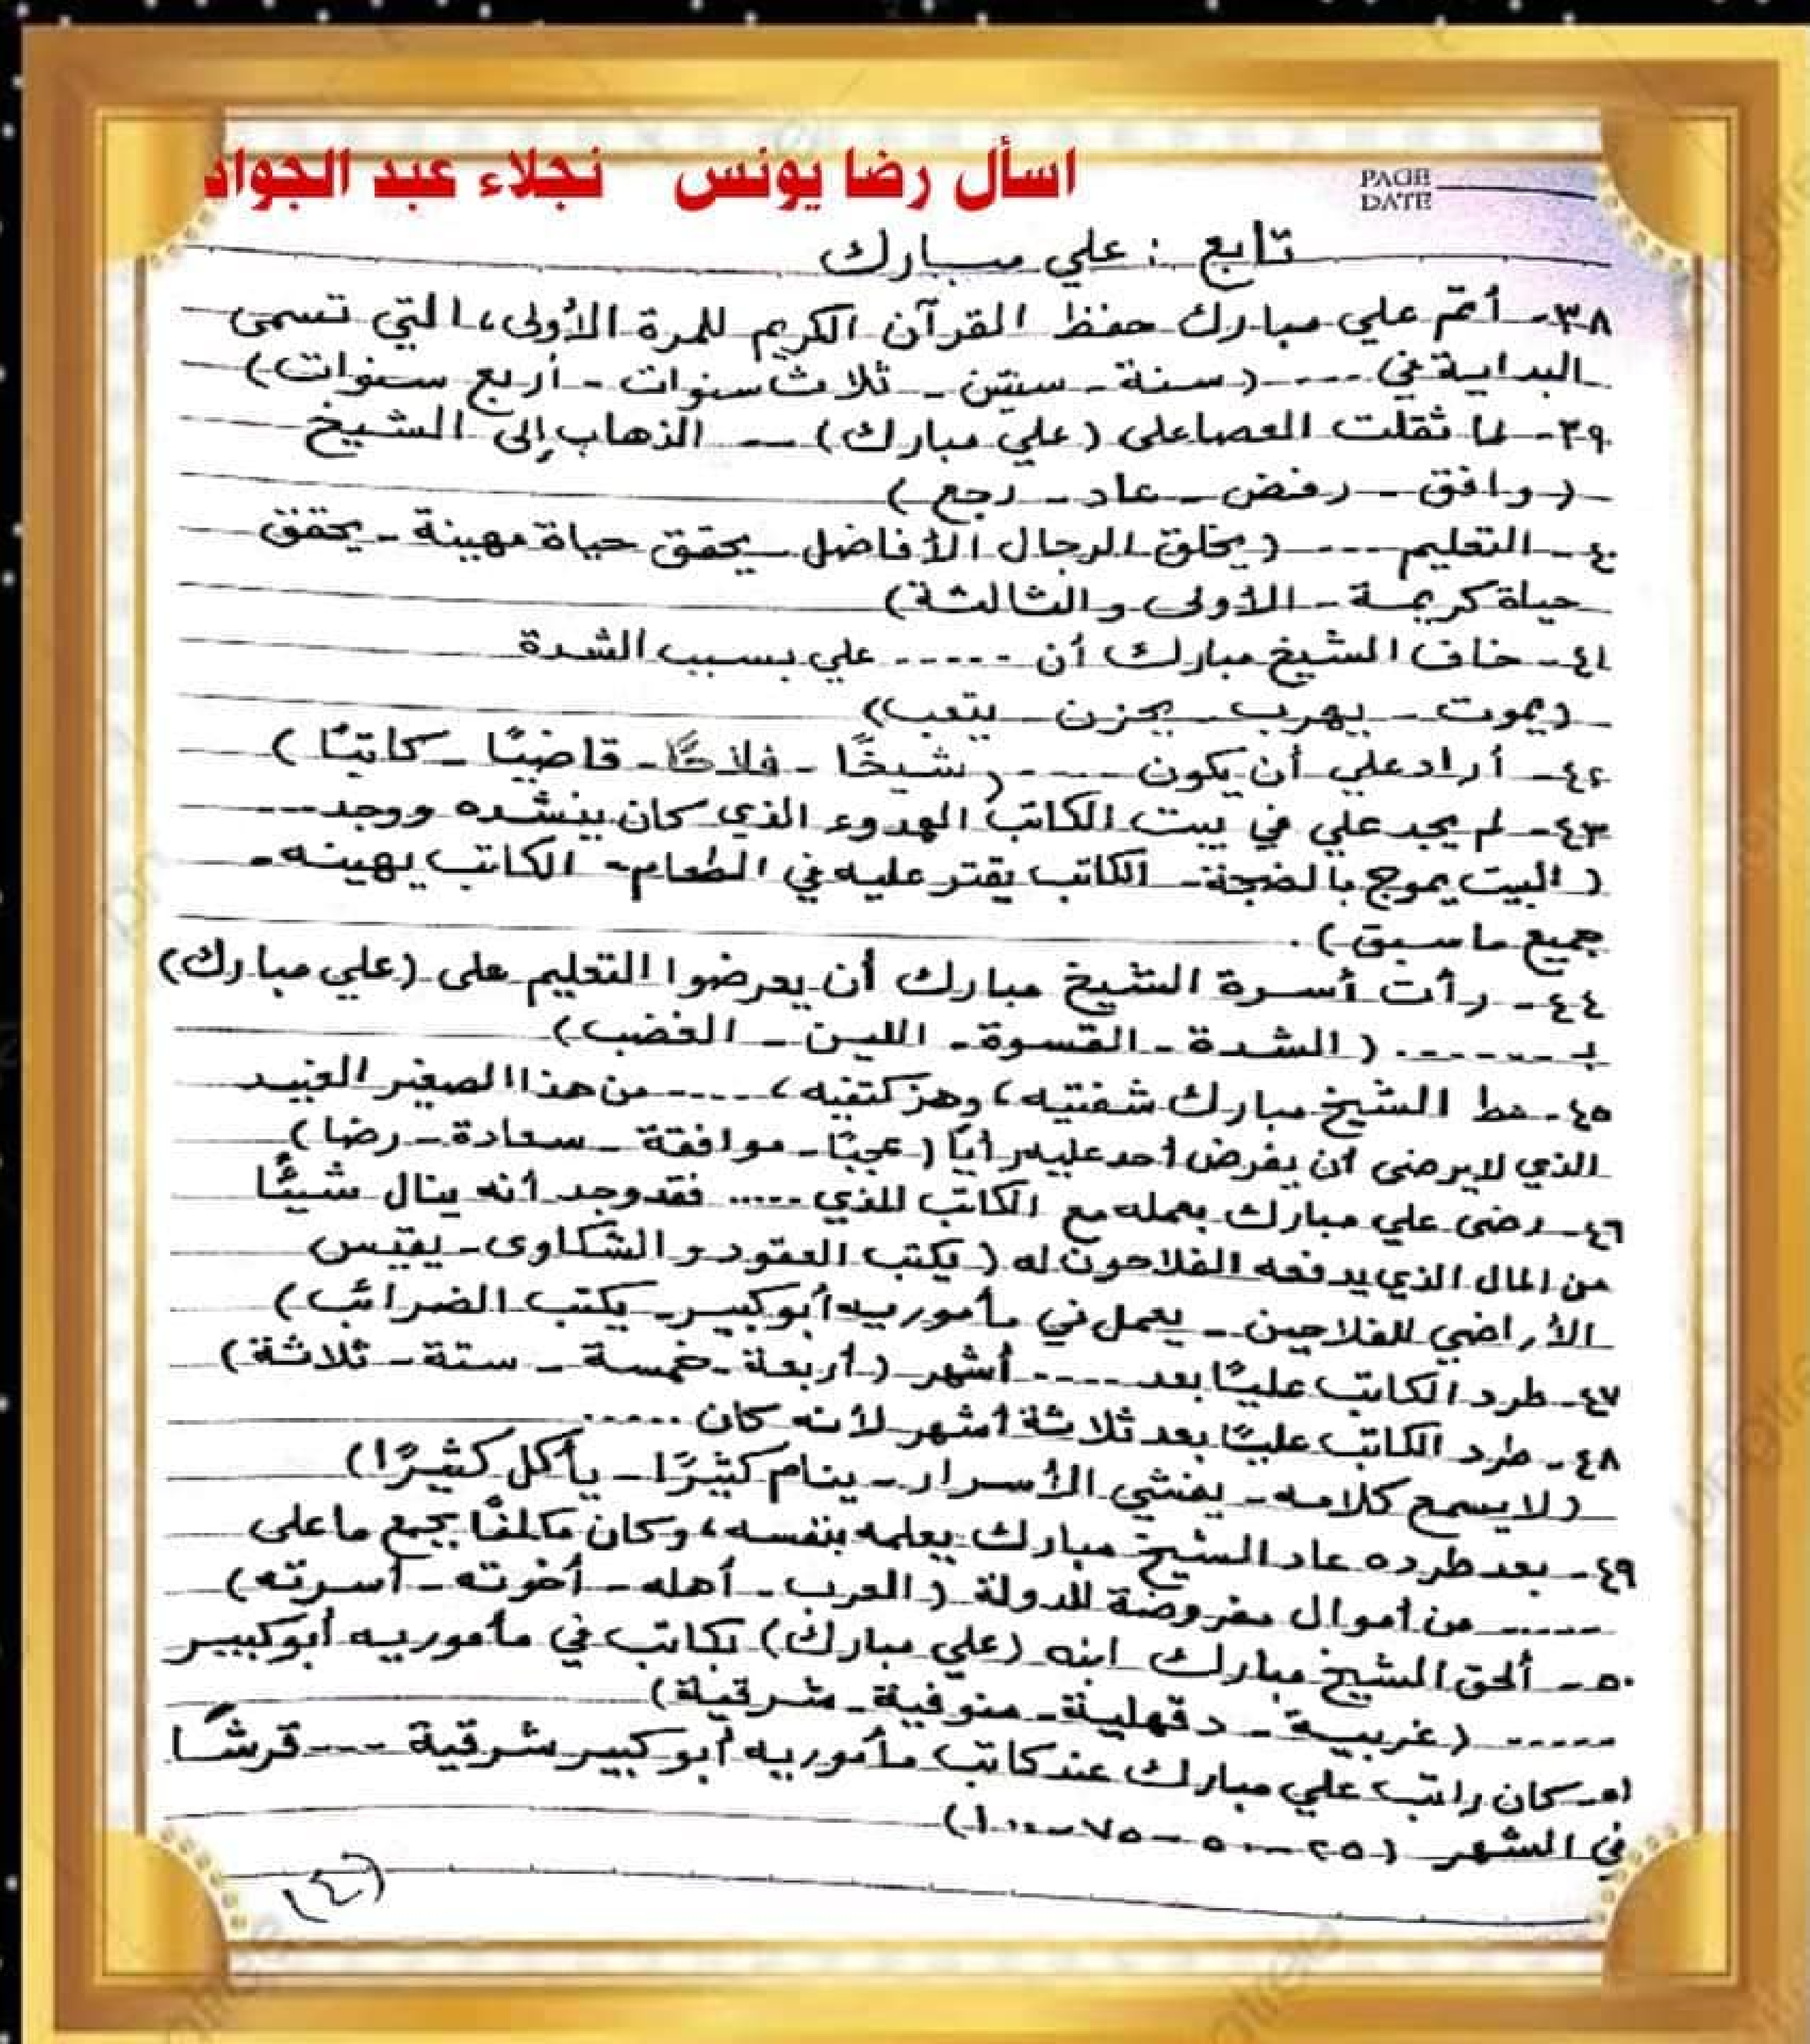 اسأل رضا يونس   نجلاء عبد الجواد
PAGE
DATE
تابع : علي مبارك
٣٨- أتمّ علي مبارك حفظ القرآن الكريم للمرة الأولى، التي تسمى
البداية في ---- (سنة - سنتين - ثلاث سنوات - أربع سنوات)
٣٩- لما ثقلت العصا على (علي مبارك) -- الذهاب إلى الشيخ
(وافق - رفض - عاد - رجع)
٤٠- التعليم ---- (يخلق الرجال الأفاضل - يحقق حياة مهينة - يحقق
حياة كريمة - الأولى والثالثة)
٤١- خاف الشيخ مبارك أن ----- علي بسبب الشدة
(يموت - يهرب - يحزن - يتعب)
٤٢- أراد علي أن يكون ----- (شيخًا - فلاحًا - قاضيًا - كاتبًا)
٤٣- لم يجد علي في بيت الكاتب الهدوء الذي كان ينشده ووجد ---
(البيت يموج بالضجة - الكاتب يقتر عليه في الطعام - الكاتب يهينه -
جميع ما سبق).
٤٤- رأت أسرة الشيخ مبارك أن يعرضوا التعليم على (علي مبارك)
بـ ------. (الشدة - القسوة - اللين - الغضب)
٤٥- مط الشيخ مبارك شفتيه، وهز كتفيه، ---- من هذا الصغير العنيد
الذي لا يرضى أن يفرض أحد عليه رأيًا (عجبًا - موافقة - سعادة - رضا)
٤٦- رضى علي مبارك بعمله مع الكاتب الذي ..... فقد وجد أنه ينال شيئًا
من المال الذي يدفعه الفلاحون له (يكتب العقود والشكاوى - يقيس
الأراضي للفلاحين - يعمل في مأموريه أبو كبير - يكتب الضرائب)
٤٧- طرد الكاتب عليًا بعد ---- أشهر (أربعة - خمسة - ستة - ثلاثة)
٤٨- طرد الكاتب عليًا بعد ثلاثة أشهر لأنه كان -----
(لا يسمع كلامه - يفشي الأسرار - ينام كثيرًا - يأكل كثيرًا)
٤٩- بعد طرده عاد الشيخ مبارك يعلمه بنفسه، وكان مكلفًا بجمع ما على
----- من أموال مفروضة للدولة (العرب - أهله - أخوته - أسرته)
٥٠- ألحق الشيخ مبارك ابنه (علي مبارك) بكاتب في مأموريه أبو كبير
----- (غربية - دقهلية - منوفية - شرقية)
٥١- كان راتب علي مبارك عند كاتب مأموريه أبو كبير شرقية --- قرشًا
في الشهر (٢٥ - ٥٠ - ٧٥ - ١٠٠)
(٤)